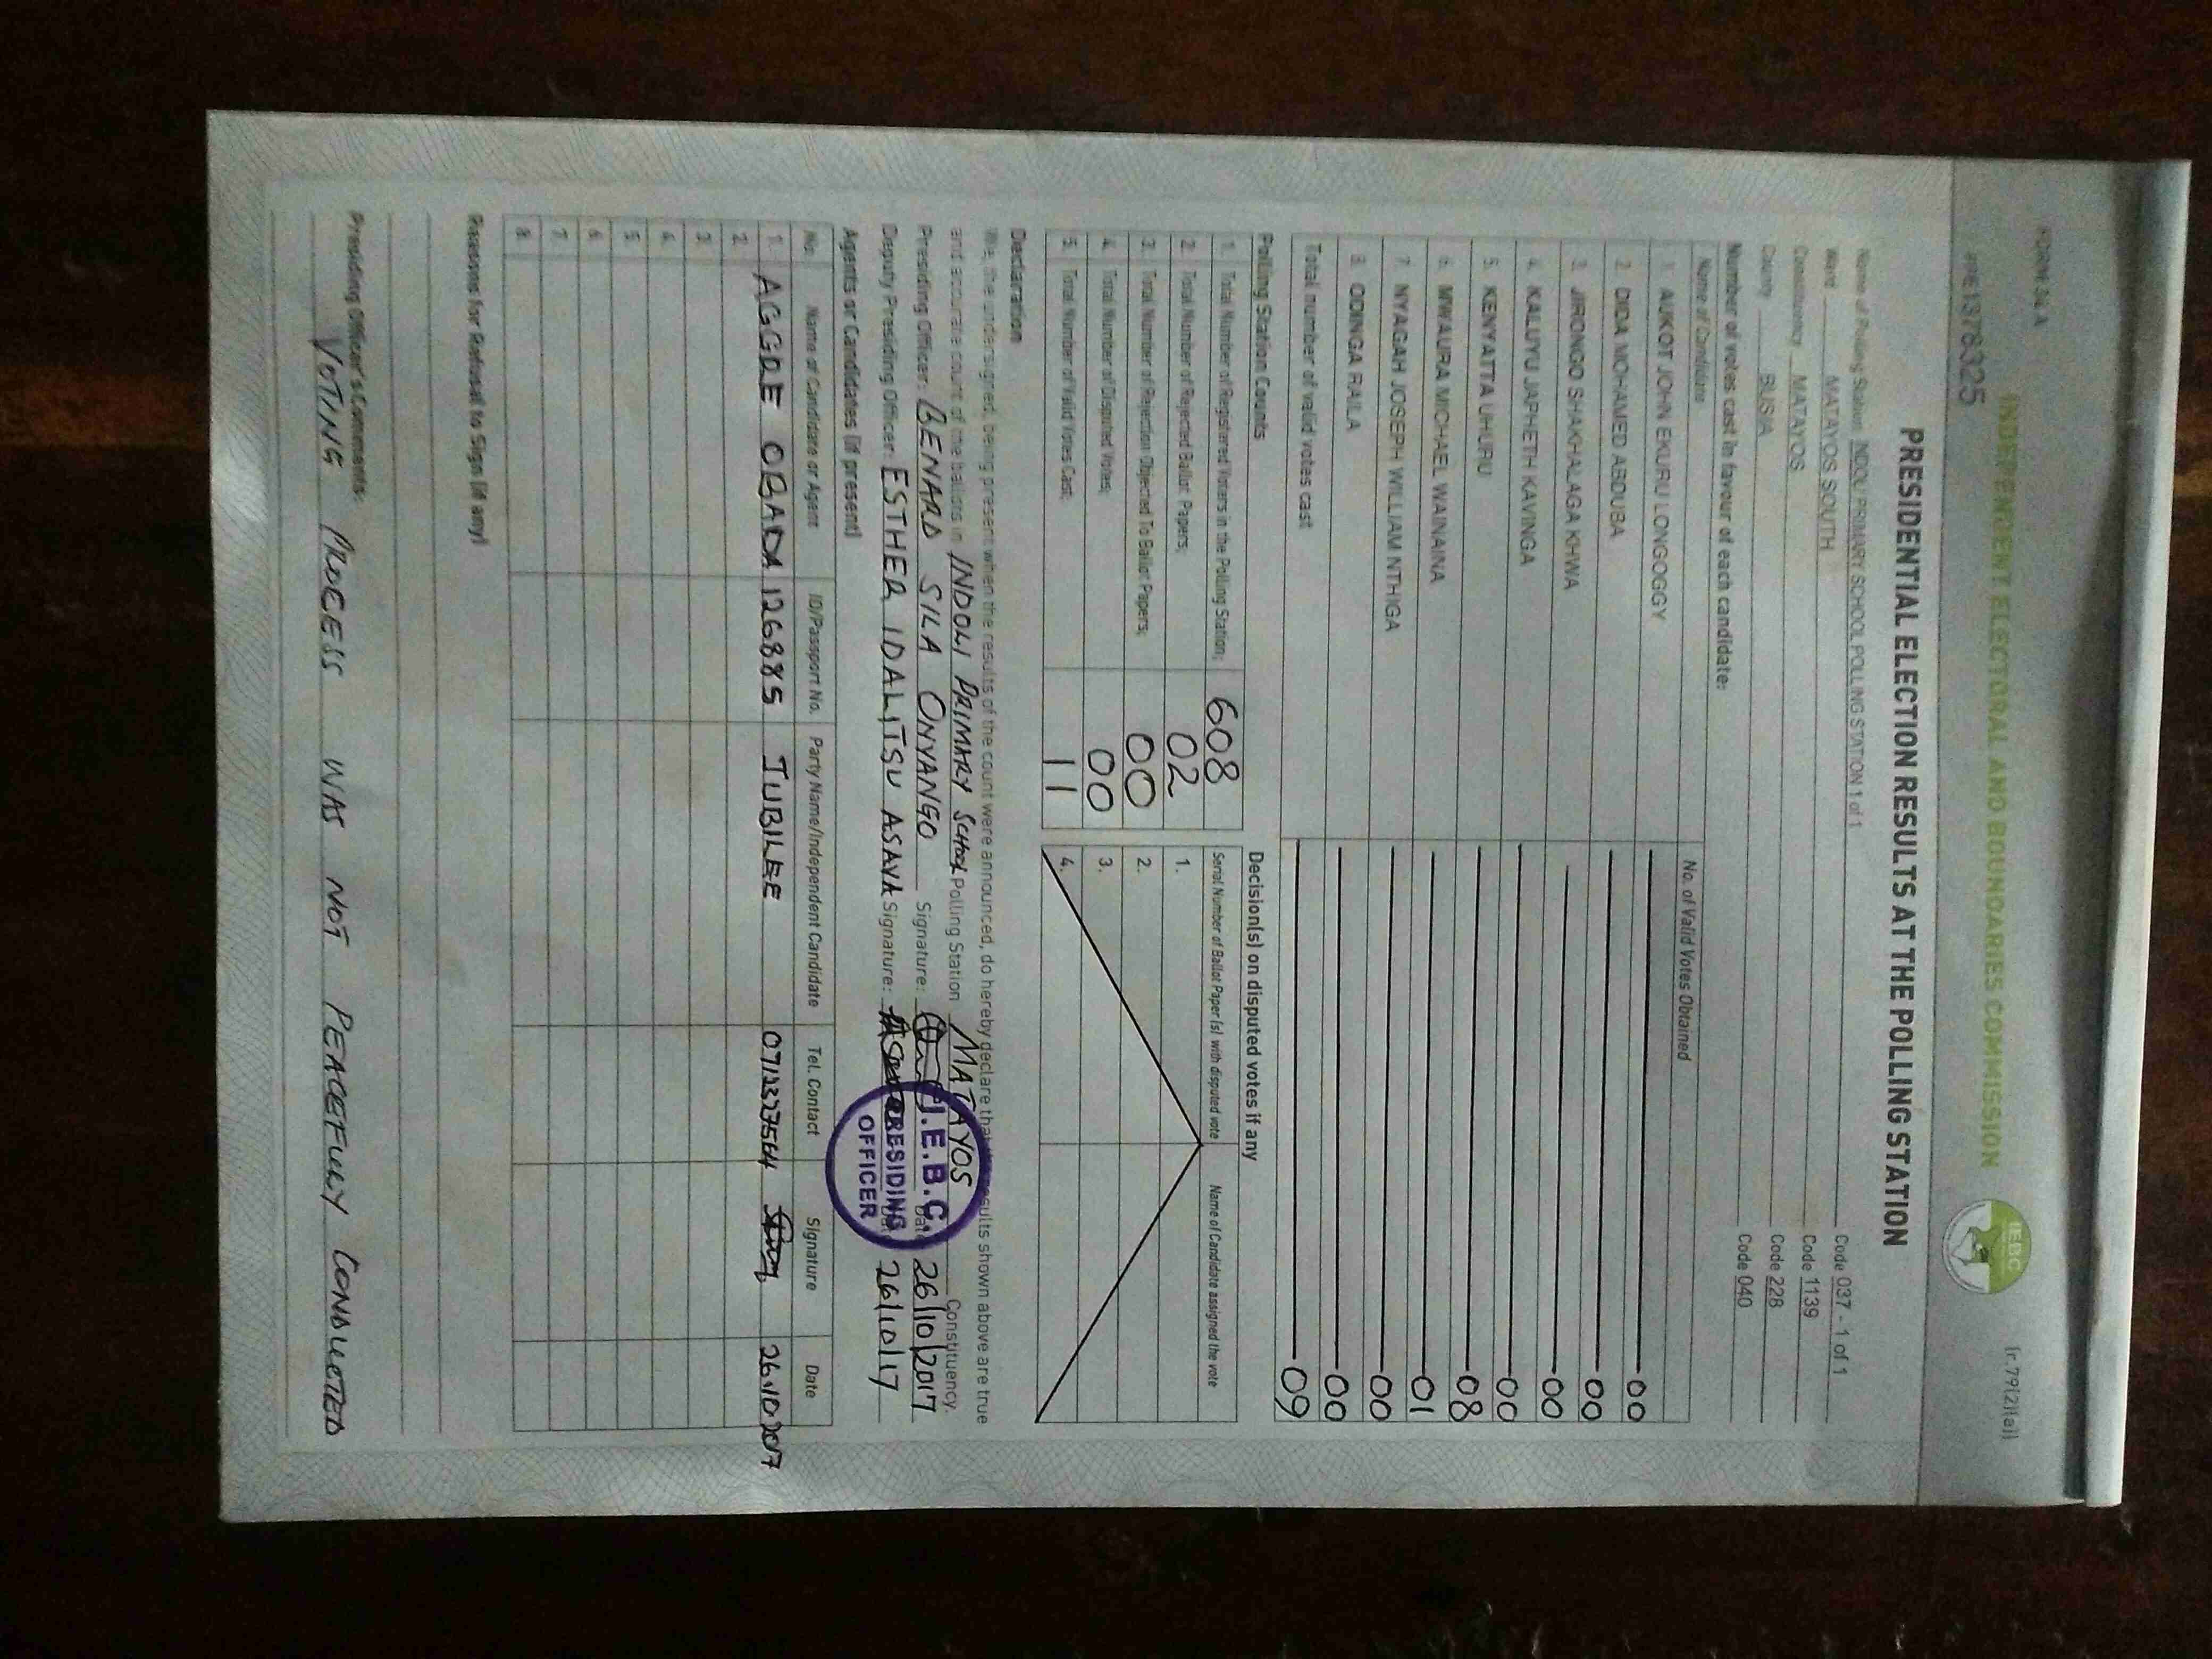 FORM 34 A
[r.79(2)(a)]
INDEPENDENT ELECTORAL AND BOUNDARIES COMMISSION
IEBC
PRE1378325
PRESIDENTIAL ELECTION RESULTS AT THE POLLING STATION
Name of Polling Station INDOLI PRIMARY SCHOOL POLLING STATION 1 of 1 Code 037 - 1 of 1
Ward MATAYOS SOUTH Code 1139
Constituency MATAYOS Code 228
County BUSIA Code 040
Number of votes cast in favour of each candidate:
Name of Candidate No. of Valid Votes Obtained
1. AUKOT JOHN EKURU LONGOGGY 00
2. DIDA MOHAMED ABDUBA 00
3. JIRONGO SHAKHALAGA KHWA 00
4. KALUYU JAPHETH KAVINGA 00
5. KENYATTA UHURU 08
6. MWAURA MICHAEL WAINAINA 01
7. NYAGAH JOSEPH WILLIAM NTHIGA 00
8. ODINGA RAILA 00
Total number of valid votes cast 09
Polling Station Counts
1. Total Number of Registered Voters in the Polling Station; 608
2. Total Number of Rejected Ballot Papers; 02
3. Total Number of Rejection Objected To Ballot Papers; 00
4. Total Number of Disputed Votes; 00
5. Total Number of Valid Votes Cast; 11
Decision(s) on disputed votes if any
Serial Number of Ballot Paper (s) with disputed vote Name of Candidate assigned the vote
1.
2.
3.
4.
Declaration
We, the undersigned, being present when the results of the count were announced, do hereby declare that the results shown above are true
and accurate count of the ballots in INDOLI PRIMARY SCHOOL Polling Station MATAYOS Constituency.
Presiding Officer: BENARD SILA ONYANGO Signature: Date 26/10/2017
Deputy Presiding Officer: ESTHER IDALITSU ASAVA Signature: 26/10/17
I.E.B.C.
PRESIDING
OFFICER
Agents or Candidates (if present)
No. Name of Candidate or Agent ID/Passport No. Party Name/Independent Candidate Tel. Contact Signature Date
1. AGGDE OBADA 126885 JUBILEE 071237564 26.10.2017
2.
3.
4.
5.
6.
7.
8.
Reasons for Refusal to Sign (if any)
Presiding Officer's Comments:
VOTING PROCESS WAS NOT PEACEFULLY CONDUCTED